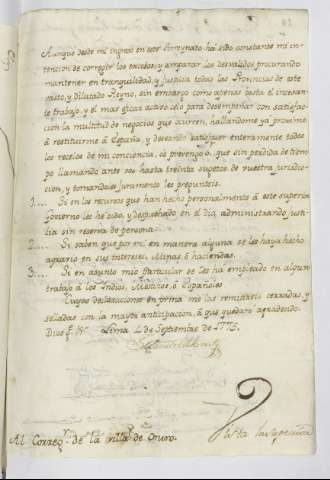 Aunque desde mi ingreso en este Virreynato ha sido constante mi in-
tencion de corregir los excesos, y amparar los desvalidos procurando
mantener en tranquilidad, y Justicia todas las Provincias de este
vasto, y dilatado Reyno, sin embargo como apenas basta el incesan-
te trabajo, y el mas eficaz activo celo para desempeñar con satisfac-
cion la multitud de negocios que ocurren, hallandome ya proximo
á restituirme á España, y deseando satisfacer enteramente todos
los recelos de mi conciencia, os prevengo á que sin perdida de tiem-
po llamando ante vos hasta treinta sugetos de vuestra jurisdic-
cion, y tomandoles juramento les pregunteis.
1... Si en los recursos que han hecho personalmente á este superior
Govierno les he oido, y despachado en el dia, administrando justi-
cia sin reserva de persona.
2... Si saben que por mi en manera alguna se les haya hecho
agravio en sus intereses, Minas, ó haciendas.
3... Si en asunto mio Particular se les ha empleado en algun
trabajo á los Indios, Mestizos, ó Españoles.
Cuyas declaraciones en forma me las remitireis cerradas, y
selladas con la mayor anticipacion, á que quedaré agradecido.
Dios Lima de Septiembre de 1775.
Al Correg.r de la Villa de Oruro.